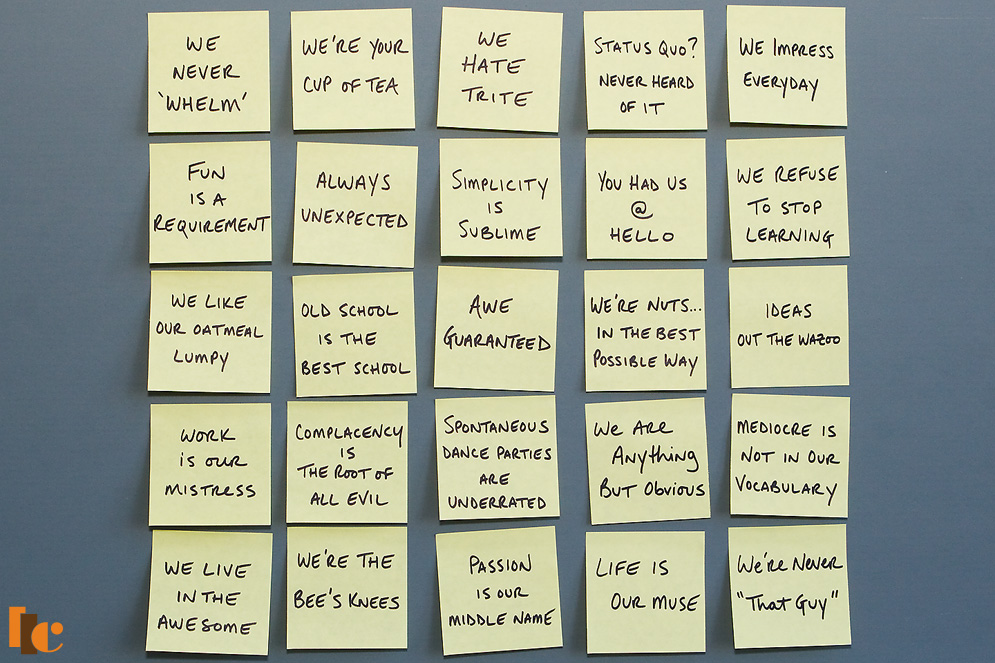 WE
NEVER
'WHELM'
WE'RE YOUR
CUP OF TEA
WE
HATE
TRITE
STATUS QUO?
NEVER HEARD
OF IT
WE IMPRESS
EVERYDAY
FUN
IS A
REQUIREMENT
ALWAYS
UNEXPECTED
SIMPLICITY
IS
SUBLIME
YOU HAD US
@
HELLO
WE REFUSE
TO STOP
LEARNING
WE LIKE
OUR OATMEAL
LUMPY
OLD SCHOOL
IS THE
BEST SCHOOL
AWE
GUARANTEED
WE'RE NUTS...
IN THE BEST
POSSIBLE WAY
IDEAS
OUT THE WAZOO
WORK
IS OUR
MISTRESS
COMPLACENCY
IS
THE ROOT OF
ALL EVIL
SPONTANEOUS
DANCE PARTIES
ARE
UNDERRATED
WE ARE
ANYTHING
BUT OBVIOUS
MEDIOCRE IS
NOT IN OUR
VOCABULARY
WE LIVE
IN THE
AWESOME
WE'RE THE
BEE'S KNEES
PASSION
IS OUR
MIDDLE NAME
LIFE IS
OUR MUSE
We're Never
"That Guy"